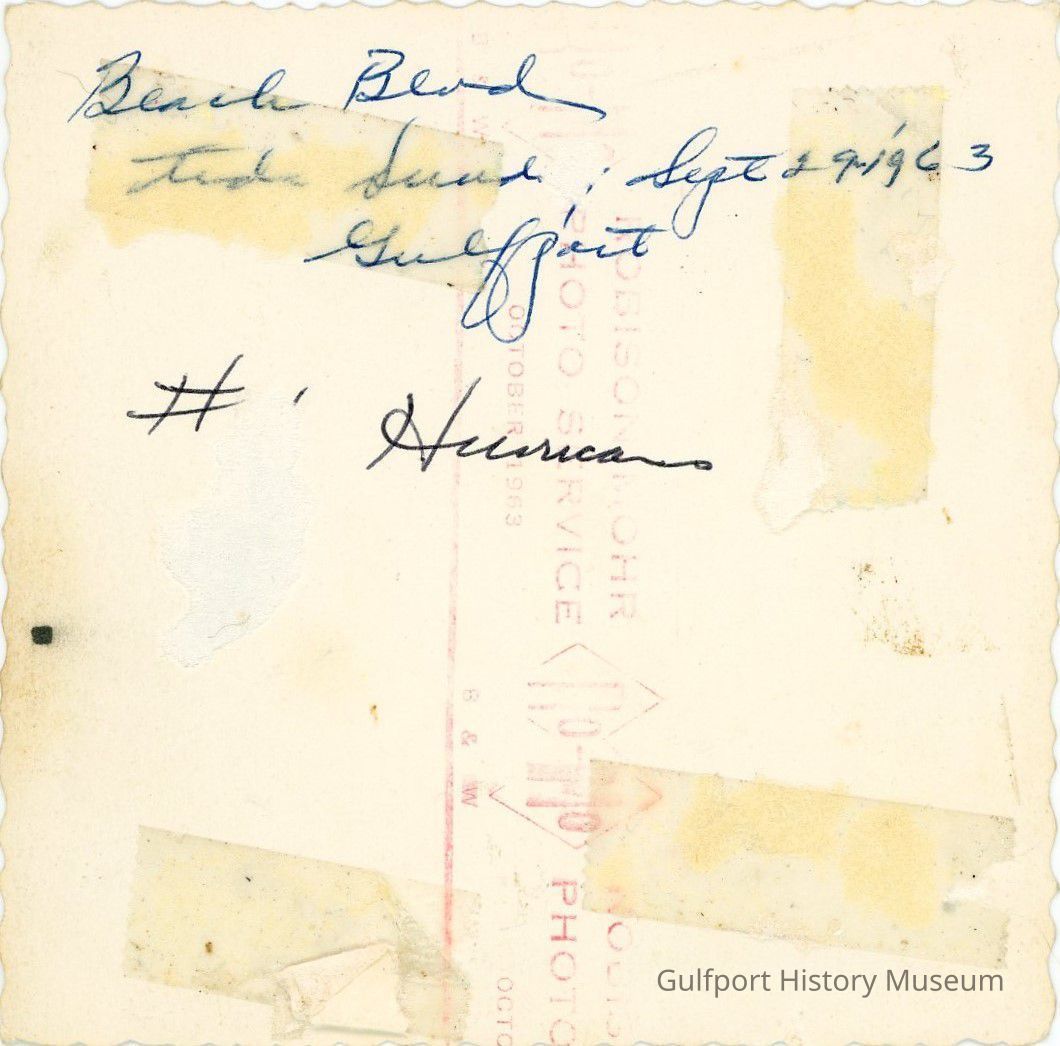 Beach Blvd
Sept 29, 1963
Gulfport
# 1 Hurricane
B & W
OCTOBER 1963
PHOTO SERVICE
ROBISON MOHR
B & W
PHOTO
OCTO
Gulfport History Museum